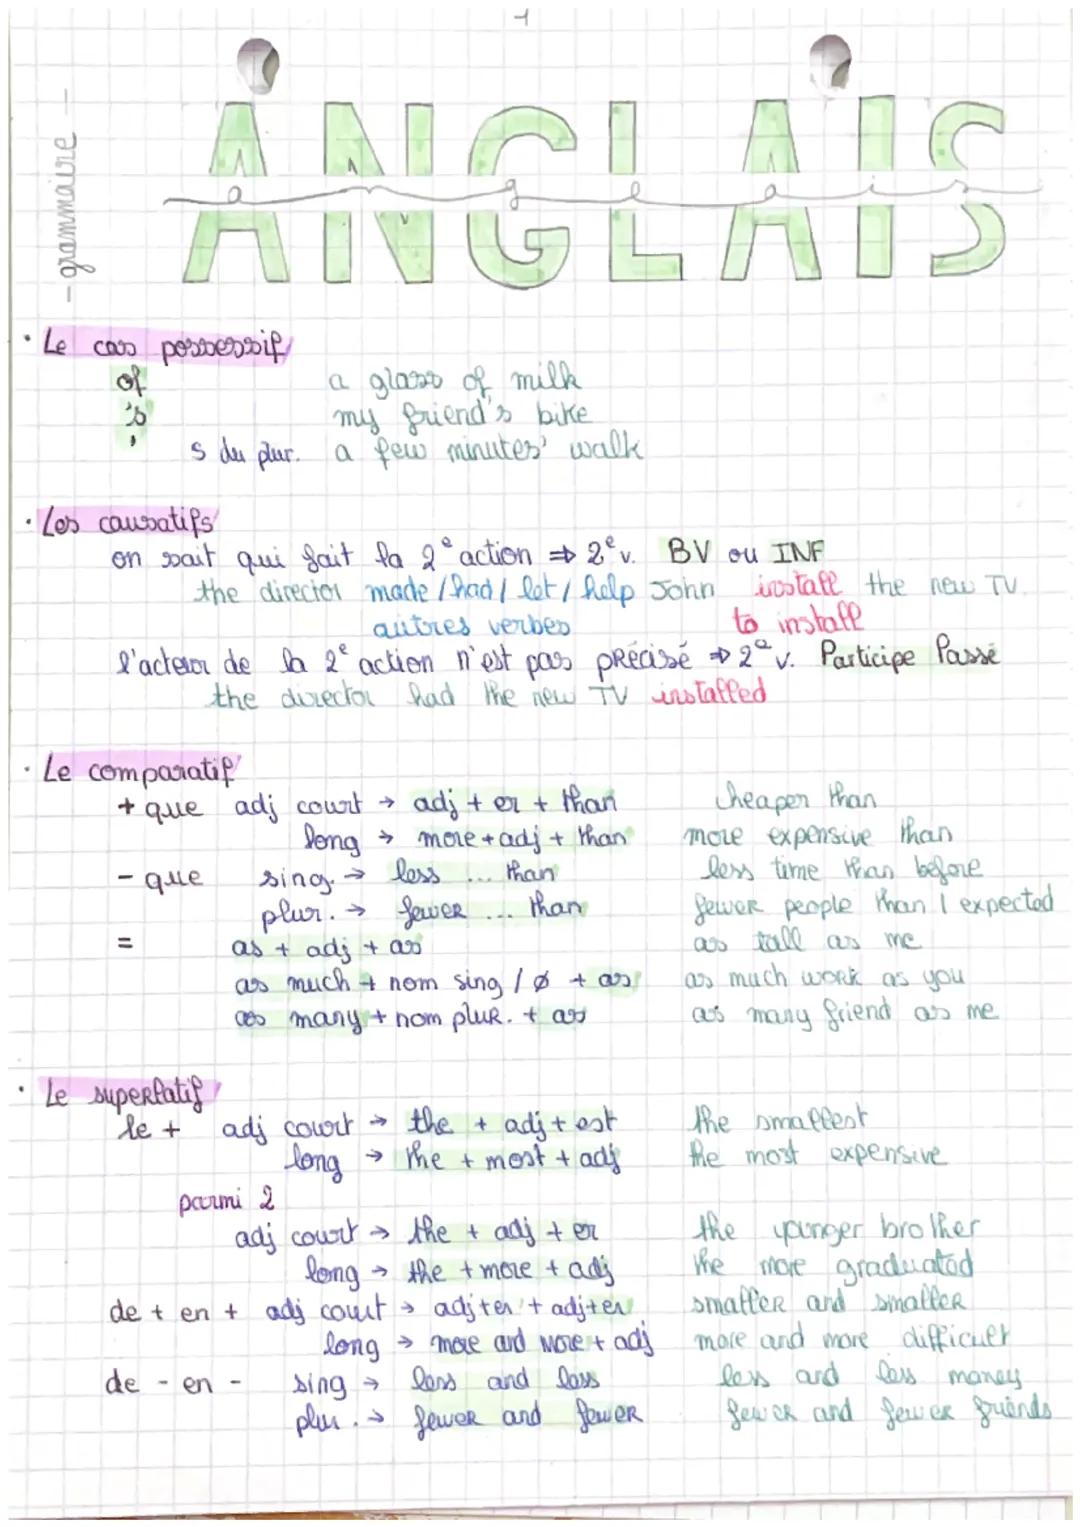 1
- grammaire -
ANGLAIS
anglais
· Le cas possessif
of a glass of milk
's my friend's bike
' s du plur. a few minutes' walk
· Les causatifs
on sait qui fait la 2e action ⇒ 2e v. BV ou INF
the director made / had / let / help John install the new TV.
autres verbes to install
l'acteur de la 2e action n'est pas précisé ⇒ 2e v. Participe Passé
the director had the new TV installed
· Le comparatif
+ que adj court → adj + er + than cheaper than
long → more + adj + than more expensive than
- que sing. → less ... than less time than before
plur. → fewer ... than fewer people than I expected
= as + adj + as as tall as me
as much + nom sing / ø + as as much work as you
as many + nom plur. + as as many friend as me
· Le superlatif
le + adj court → the + adj + est the smallest
long → the + most + adj the most expensive
parmi 2
adj court → the + adj + er the younger brother
long → the + more + adj the more graduated
de + en + adj court → adj+er + adj+er smaller and smaller
long → more and more + adj more and more difficult
de - en - sing → less and less less and less money
plur. → fewer and fewer fewer and fewer friends